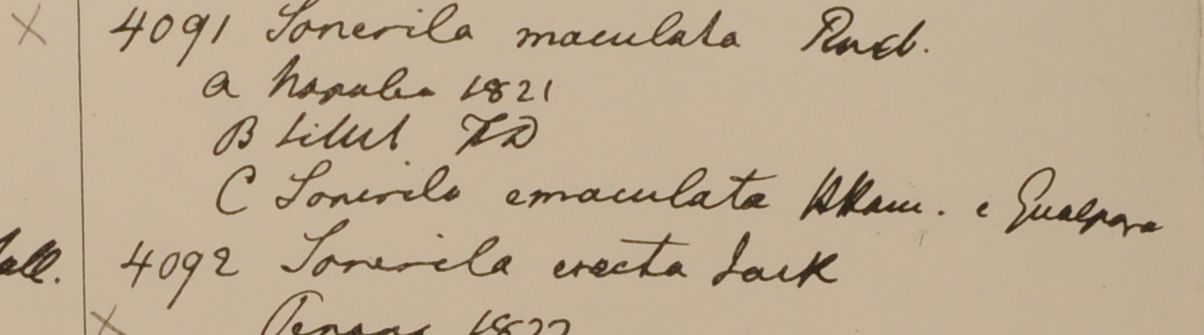 4091 Sonerila maculata Roxb.
a Napalia 1821
B Sillet FD
C Sonerila emaculata HHam. e Gualpara
all. 4092 Sonerila erecta Jack
Penang 1822